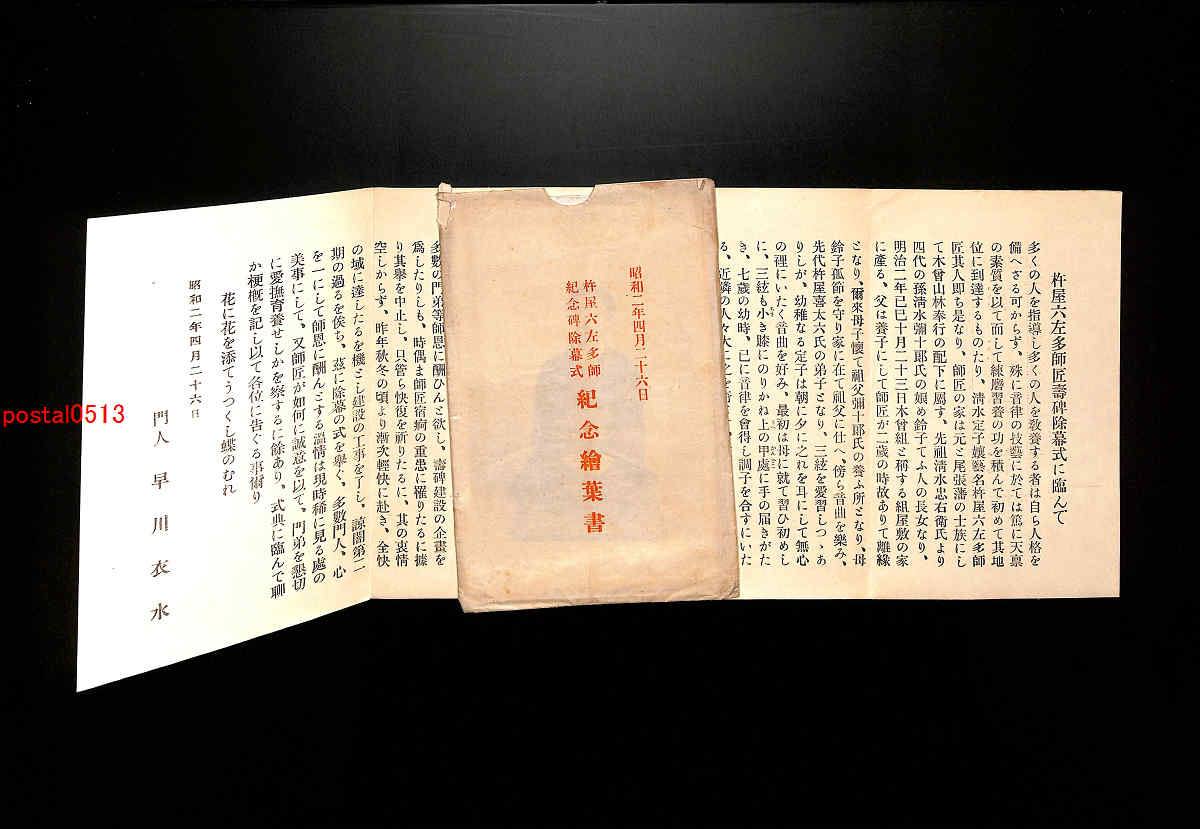 杵屋六左多師匠壽碑除幕式に臨んで
多くの人を指導し多くの人を敎養する者は自ら人格を
備へざる可からず、殊に音律の技藝に於ては篤に天禀
の素質を以て而して練磨習養の功を積んで初めて其地
位に到達するものたり、淸水定子孃藝名杵屋六左多師
匠其人卽ち是なり、師匠の家は元と尾張藩の士族にし
て木曾山林奉行の配下に屬す、先祖淸水忠右衛氏より
四代の孫淸水彌十郎氏の娘め鈴子てふ人の長女なり、
明治二年已巳十月二十三日木曾組と稱する組屋敷の家
に產る、父は養子にして師匠が二歲の時故ありて離緣
となり、爾來母子懷て祖父彌十郎氏の養ふ所となり、母
鈴子孤節を守り家に在て祖父に仕へ、傍ら音曲を樂み、
先代杵屋喜太六氏の弟子となり、三絃を愛習しつゝあ
りしが、幼稚なる定子は朝に夕に之れを耳にして無心
の裡にいたく音曲を好み、最初は母に就て習ひ初めし
に、三絃も小き膝にのりかね上の甲處に手の屆きがた
き、七歲の幼時、已に音律を會得し調子を合すにいた
る、近隣の人々大に之を
昭和二年四月二十六日
杵屋六左多師
紀念碑除幕式
紀念繪葉書
多數の門弟等師恩に酬ひんと欲し、壽碑建設の企畫を
爲したりしも、時偶ま師匠宿痾の重患に罹りたるに據
り其擧を中止し、只管ら快復を祈りたるに、其の衷情
空しからず、昨年秋冬の頃より漸次輕快に赴き、全快
の域に達したるを機とし建設の工事を了し、諒闇第二
期の過るを俟ち、茲に除幕の式を擧く、多數門人、心
を一にして師恩に酬んとする溫情は現時稀に見る處の
美事にして、又師匠が如何に誠意を以て、門弟を懇切
に愛撫育養せしかを察するに餘あり、式典に臨んで聊
か梗槪を記し以て各位に告ぐる事爾り
花に花を添てうつくし蝶のむれ
昭和二年四月二十六日
門人 早川衣水
postal0513